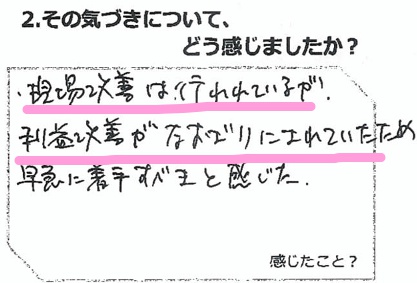 2.その気づきについて、
どう感じましたか?
・現場改善は行われているが、
利益改善がなおざりにされていたため
早急に着手すべきと感じた.
感じたこと?